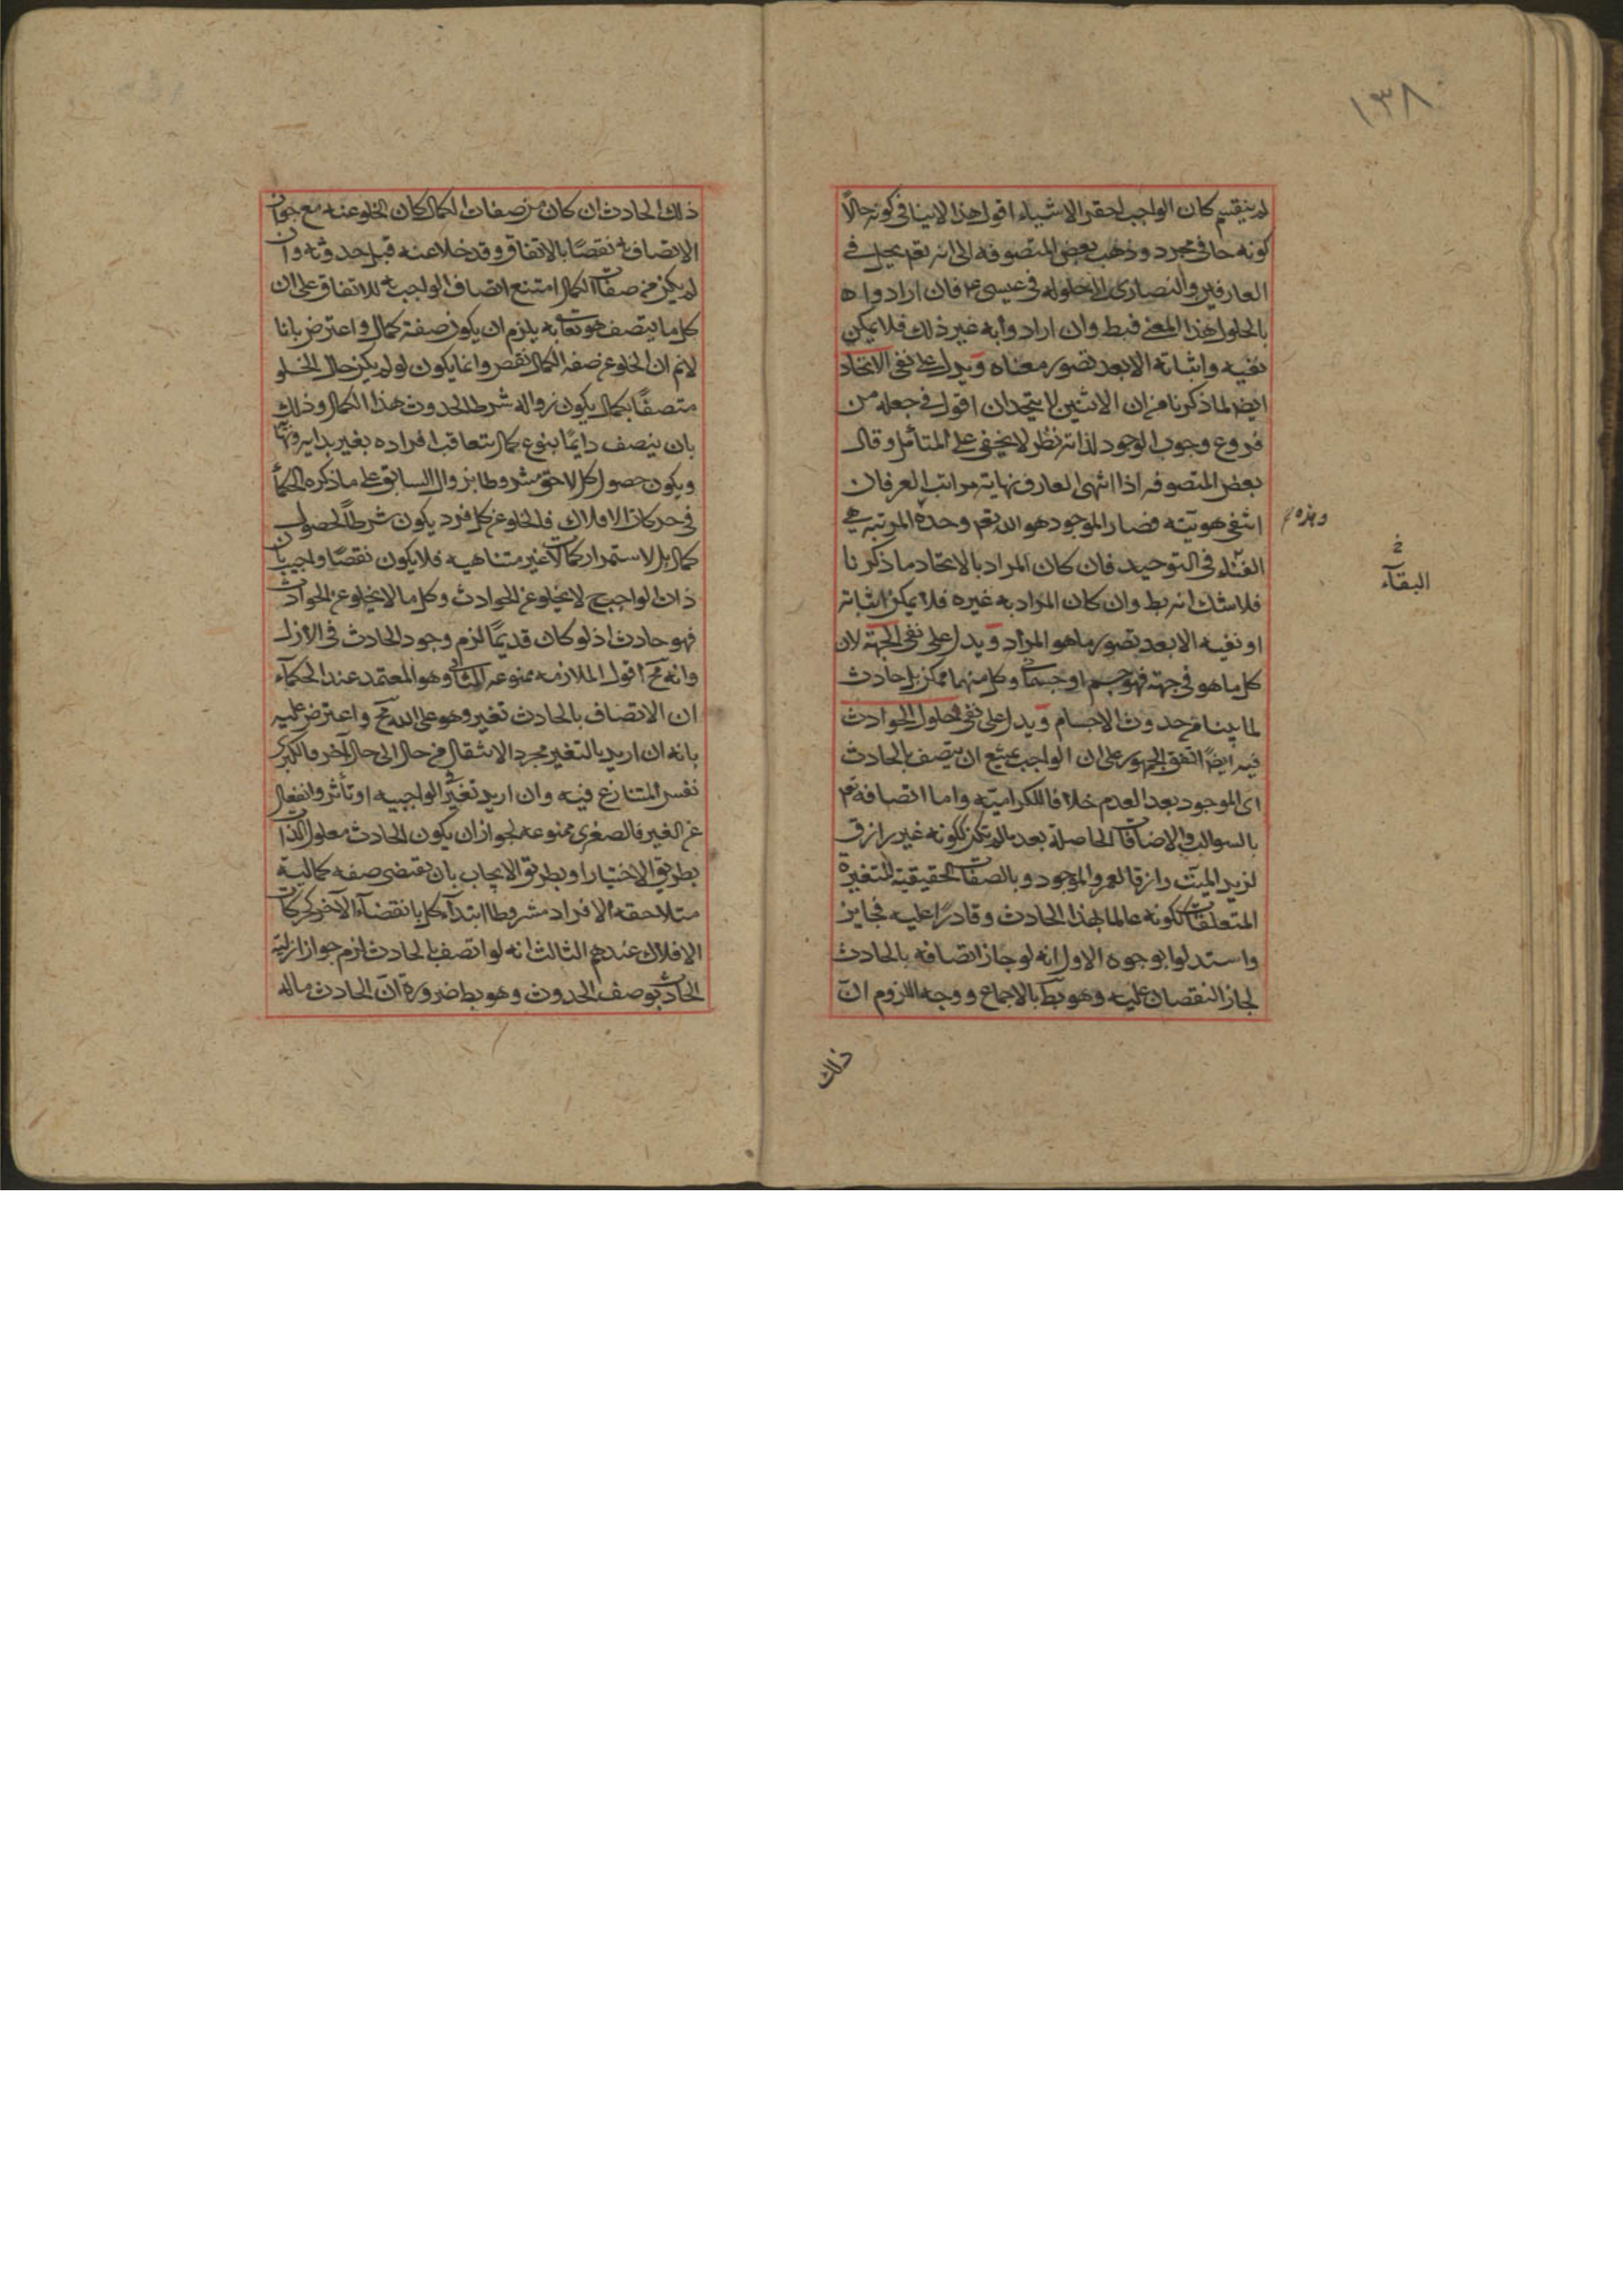 ١٣٨
لم ينقسم كان الواجب احقر الاشياء اقول هذا لا ينافى كونه حالاً
كونه حا فى مجرد وذهب بعض المتصوفه الى انه تعم يحل فى
العارفين والنصارى الى حلوله فى عيسى ع م فان ارادوا ه
بالحلول هذا المعنى فبط وان ارادوا به غير ذلك فلا يمكن
نفيه واثباته الا بعد تصور معناه ويدل على نفى الاتحاد
ايضا لما ذكرنا من ان الاثنين لا يتحدان اقول فى جعله من
فروع وجوب الوجود لذاته نظر لا يخفى على المتأمل وقال
بعض المتصوفه اذا انتهى العارف نهاية مراتب العرفان
انتفى هويته فصار الموجود هو الله تعم وحده المرتبة هى
وهذه
الفناء فى التوحيد فان كان المراد بالاتحاد ما ذكرنا
خ
البقآء
فلا شك انه بط وان كان المراد به غيره فلا يمكن اثباته
او نفيه الا بعد تصور ما هو المراد ويدل على نفى الجهة لان
كل ما هو فى جهة فهو جسم او جسمانى وكل منهما ممكن بل حادث
لما بينا من حدوث الاجسام ويدل على نفى حلول الحوادث
فيه ايضاً اتفق الجمهور على ان الواجب يمتنع ان يتصف بالحادث
اى الموجود بعد العدم خلافا للكرامية واما اتصافه تعم
بالسوالب والاضافات الحاصلة بعد ما لم تكن ككونه غير رازق
لزيد الميت رازقا لعمرو الموجود وبالصفات الحقيقية المتغيرة
المتعلقات ككونه عالما بهذا الحادث وقادراً عليه فجايز
واستدلوا بوجوه الاول انه لو جاز اتصافه بالحادث
لجاز النقصان عليه وهو بط بالاجماع ووجه اللزوم ان
ذلك
ذلك الحادث ان كان من صفات الكمال كان الخلو عنه مع جواز
الاتصاف به نقصاً بالاتفاق وقد خلا عنه قبل حدوثه وان
لم يكن من صفات الكمال امتنع اتصاف الواجب به للاتفاق على ان
كل ما يتصف هو تعالى به يلزم ان يكون صفة كمال واعترض بانا
لانم ان الخلو عن صفه الكمال نقص وانما يكون لو لم يكن حال الخلو
متصفاً بكمال يكون زواله شرط الحدوث هذا الكمال وذلك
بان يتصف دايماً بنوع كمال تتعاقب افراده بغير بداية ونهاية
ويكون حصول كل لاحق مشروطا بزوال السابق على ما ذكره الحكمأ
فى حركات الافلاك فالخلو عن كل فرد يكون شرطاً لحصول
كمال بل لاستمرار كمالات غير متناهيه فلا يكون نقصاً واجيب بان
ذات الواجب ح لا يخلو عن الحوادث وكل ما لا يخلو عن الحوادث
فهو حادث اذ لو كان قديماً لزم وجود الحادث فى الازل
وانه مح اقول الملازمه ممنوعه الثانى وهو المعتمد عند الحكمآء
ان الاتصاف بالحادث تغير وهو على الله مح واعترض عليه
بانه ان اريد بالتغير مجرد الانتقال من حال الى حال آخر فالكبرى
نفس المتنازع فيه وان اريد تغير فى الواجبيه او تأثر وانفعال
عن الغير فالصغرى ممنوعه لجواز ان يكون الحادث معلول الذات
بطريق الاختيار او بطريق الايجاب بان يقتضى صفه كمالية
متلاحقه الافراد مشروطا ابتدآء كل بانقضآء الآخر كحركات
الافلاك عندهم الثالث انه لو اتصف بالحادث لزم جواز ازلية
الحادث بوصف الحدوث وهو بط ضرورة ان الحادث ماله